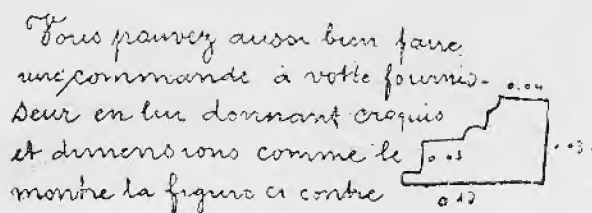 Vous pouvez aussi bien faire
une commande à votre fournis-
seur en lui donnant croquis
et dimensions comme le
montre la figure ci contre
0.04